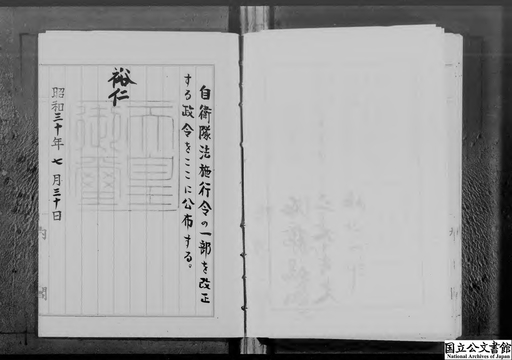 自衛隊法施行令の一部を改正
する政令をここに公布する。
裕仁
天皇
御璽
昭和三十年七月三十日
内閣
国立公文書館
National Archives of Japan